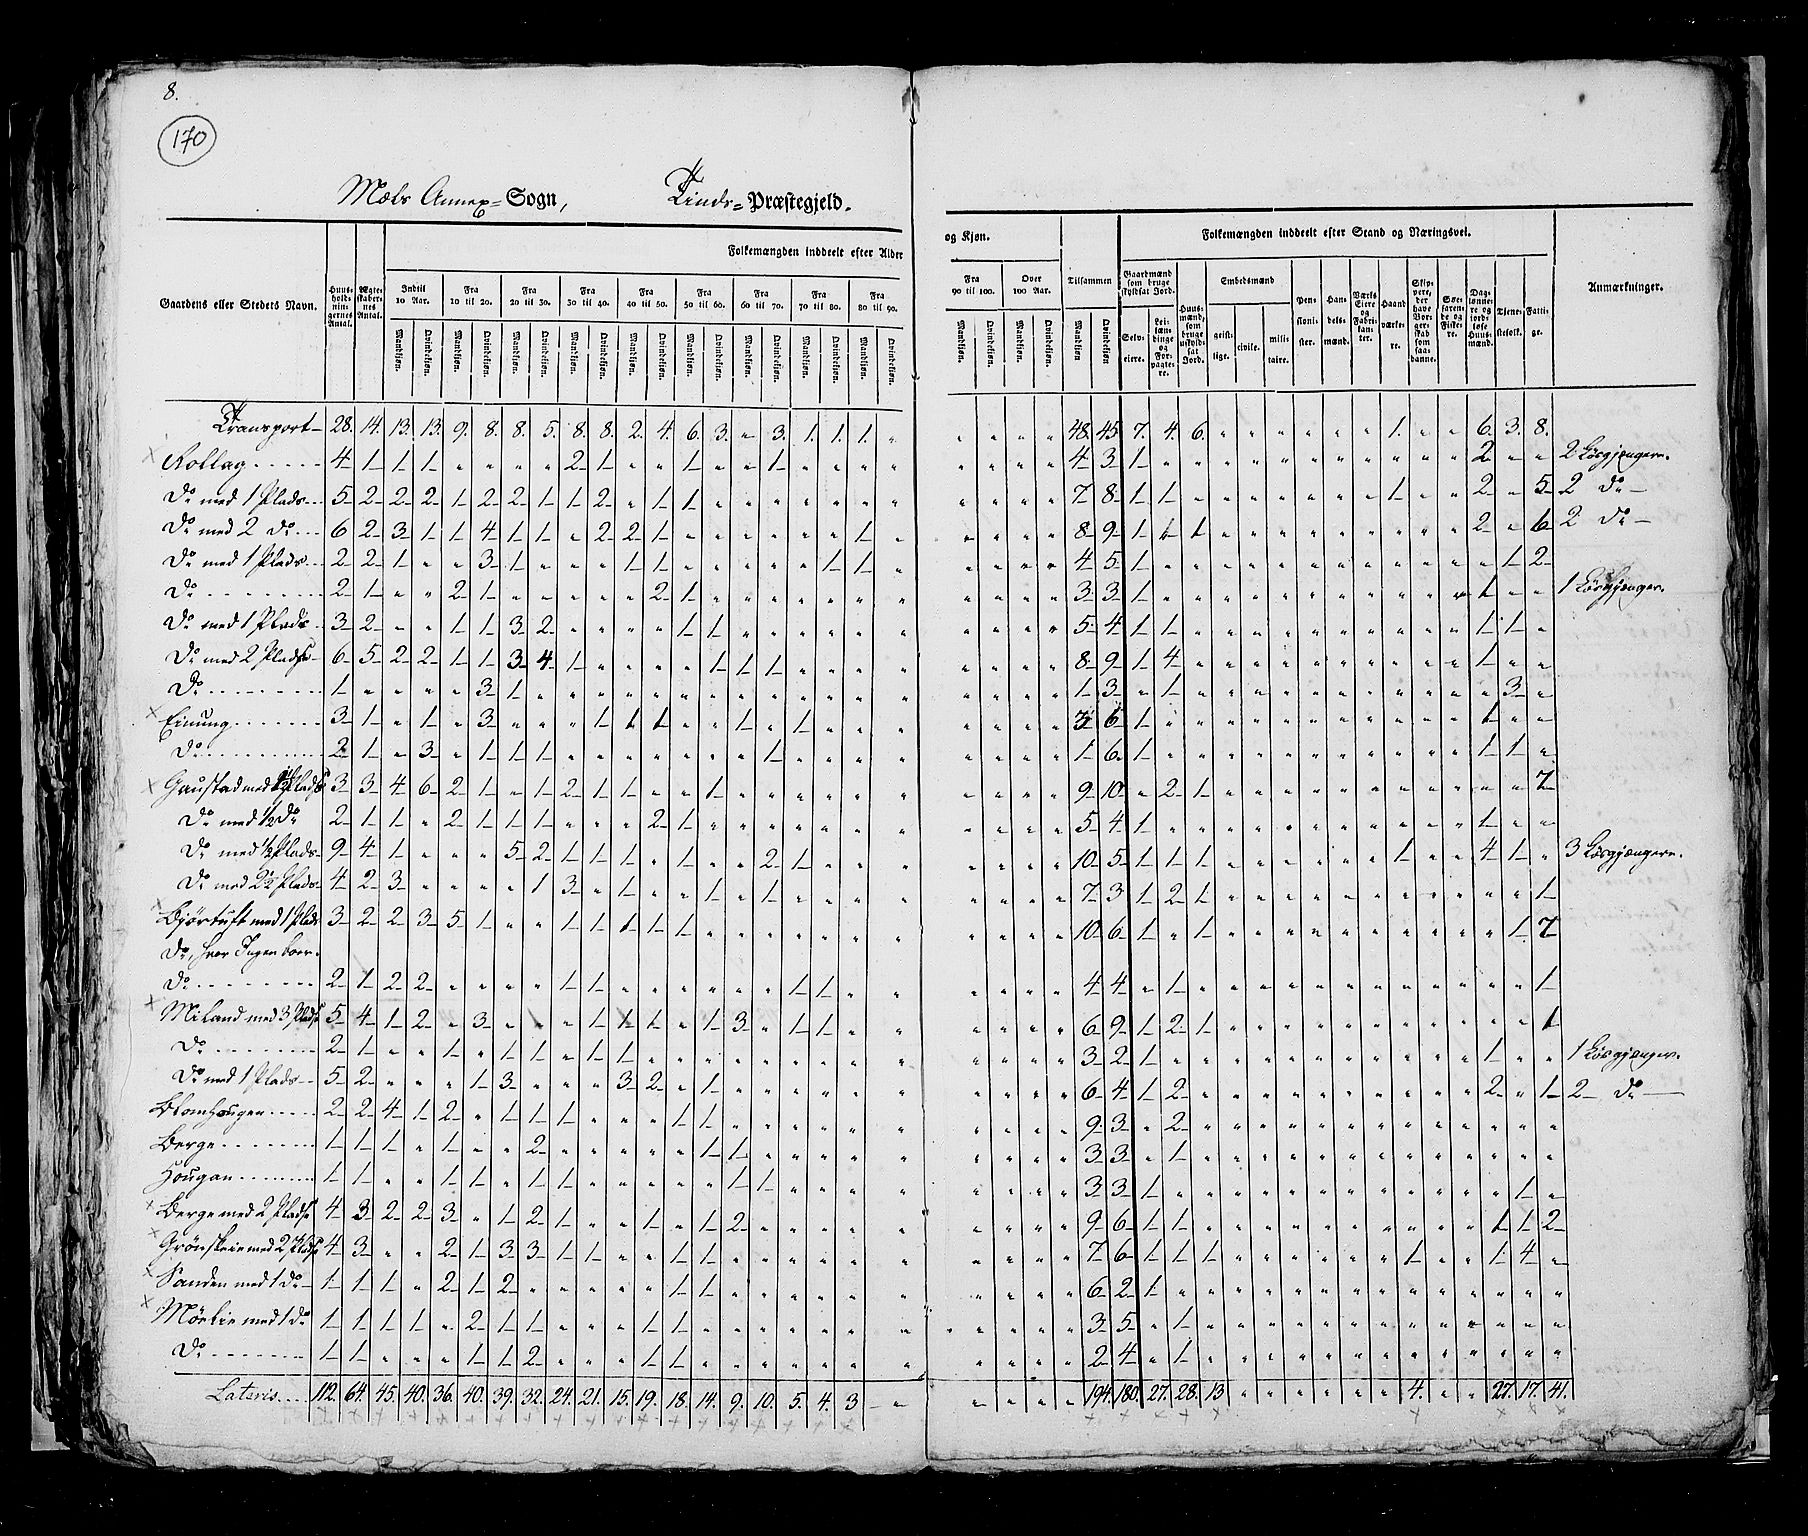 8.
170
Mæls Annex= Sogn, Tinds= Præstegjeld.
Gaardens eller Stedets Navn.
Huusholdningernes Antal.
Ægteskabernes Antal.
Folkemængden inddeelt efter Alder og Kjøn.
Indtil 10 Aar. Fra 10 til 20. Fra 20 til 30. Fra 30 til 40. Fra 40 til 50. Fra 50 til 60. Fra 60 til 70. Fra 70 til 80. Fra 80 til 90. Fra 90 til 100. Over 100 Aar.
Mandkjøn. Qvindekjøn.
Tilsammen
Mandkjøn Qvindekjøn.
Folkemængden inddeelt efter Stand og Næringsvei.
Gaardmænd som bruge skyldsat Jord.
Selveiere. Leilændinge og Forpagtere.
Huusmænd, som bruge uskyldsat Jord.
Embedsmænd
geistlige. civile. militaire.
Pensionister.
Handelsmænd.
Værks Eiere og Fabrikanter.
Haandværkere.
Skippere, der have Borgerskab som saadanne.
Søefarende og Fiskere.
Daglønnere og jordløse Huusmænd.
Tjenestefolk.
Fattige.
Anmærkninger.
Transport 28. 14. 13. 13. 9. 8. 8. 5. 8. 8. 2. 4. 6. 3. " 3. 1. 1. 1. " " " " " 48. 45. 7. 4. 6. " " " " " " 1. " " 6. 3. 8.
Rollag 4 1 1 1 " " " " 2 1 " " 1 " " 1 " " " " " " " " 4 3 1 " " " " " " " " " " " 2 " " 2 Løsgjængere.
Do med 1 Plads 5 2 2 2 1 2 2 1 1 2 " 1 1 " " " " " " " " " " " 7 8 1 1 " " " " " " " 1 " " 2 " 5 2 Do
Do med 2 Do 6 2 3 1 1 4 1 1 " 2 2 1 " " " " " " 1 " " " " " 8 9 1 1 1 " " " " " " " " " 2 " 6 2 Do
Do med 1 Plads 2 2 1 " " 3 1 " " " 1 1 " " " " " 1 1 " " " " " 4 5 1 " " " " " " " " " " " " 1 2
Do 2 1 " " 2 1 " " " " " 2 1 " " " " " " " " " " " 3 3 1 " " " " " " " " " " " 1 " " 1 Løsgjænger.
Do med 1 Plads 3 2 " " 1 1 3 2 " " " " 1 1 " " " " " " " " " " 5 4 1 1 " " " " " " " " " " 1 1 "
Do med 2 Pladse 6 5 2 2 1 1 3 4 1 " " " " 1 1 1 " " " " " " " " 8 9 1 4 " " " " " " " " " " 1 " "
Do 1 " " " " 3 1 " " " " " " " " " " " " " " " " " 1 3 " 1 " " " " " " " " " " " 3 "
Einung 3 1 " 1 " 3 " " " 1 1 1 " " 1 " 1 " " " " " " " 3 6 1 " " " " " " " " " " " 1 " "
Do 2 1 " 3 " 1 1 1 " " " " " " " 1 " " " " " " " " 1 6 1 " " " " " " " " " " " 1 1 "
Gaustad med Pladse 3 3 4 6 2 1 " 1 2 1 1 " " 1 " " " " " " " " " " 9 10 " 2 1 " " " " " " " " " " " 7
Do med ½ Do 2 1 1 " 2 1 1 1 " " " 2 1 " " " " " " " " " " " 5 4 1 " " " " " " " " " " " 1 " "
Do med ½ Plads 9 4 1 " " " 5 2 1 1 1 " 1 " " 2 1 " " " " " " " 10 5 1 1 1 " " " " " " 1 " " 4 1 " 3 Løsgjængere.
Do med 2½ Plads 4 2 3 " " " " 1 3 " 1 " " 1 " 1 " " " " " " " " 7 3 1 2 1 " " " " " " " " " " " 1
Bjørtuft med 1 Plads 3 2 2 3 5 1 " " 1 1 1 1 1 " " " " " " " " " " " 10 6 1 " 1 " " " " " " " " " " 1 7
Do, hvor Ingen boer.
Do 2 1 2 2 " " " " 1 1 " " " " " " 1 1 " " " " " " 4 4 " 1 " " " " " " " " " " " " 1
Miland med 3 Pladse 5 4 1 2 " 3 " " " 1 1 1 " 1 3 " 1 1 " " " " " " 6 9 1 2 1 " " " " " " " " " " " 1
Do 2 1 " " 1 " 1 1 " 1 1 " " " " " " " " " " " " " 3 2 1 " " " " " " " " " " " 1 " " 1 Løsgjænger.
Do med 1 Plads 5 2 " " " 1 3 " " " 3 2 " 1 " " " " " " " " " " 6 4 1 2 " " " " " " " " " " 2 " 1 2 Do
Blomhougen 2 2 4 1 2 " 1 1 1 " " " 1 1 " " " " " " " " " " 9 3 " 2 " " " " " " " " " " " " "
Berge 1 1 1 " 1 " " 2 " " " " " 1 1 " " " " " " " " " 3 3 " 1 " " " " " " " " " " " " "
Hougan 1 1 " " 1 1 " 1 1 " " " " " 1 1 " " " " " " " " 3 3 1 " " " " " " " " " " " " 1 "
Berge med 2 Pladse 4 3 2 2 3 " 1 2 1 " " 1 " 1 2 " " " " " " " " " 9 6 1 1 " " " " " " " " " " 1 1 2
Grønskeie med 2 Pladse 4 3 " " 2 1 3 3 1 1 " " 1 1 " " " " " " " " " " 7 6 1 1 1 " " " " " " 1 " " 1 4 "
Sanden med 1 Do 1 1 1 " 2 1 2 " " " " " 1 1 " " " " " " " " " " 6 2 1 " " " " " " " " " " " " " "
Mørlie med 1 Do 1 1 1 1 " 2 1 1 " " " 1 1 " " " " " " " " " " " 3 5 " 1 " " " " " " " " " " " " "
Do 1 1 " " " 1 1 2 " " " 1 1 " " " " " " " " " " " 2 4 " 1 " " " " " " " " " " " " "
Lateris 112. 64. 45. 40. 36. 40. 39. 32. 24. 21. 15. 19. 18. 14. 9. 10. 5. 4. 3 " " " " " 194. 180. 27. 28. 13 " " " " " " 4. " " 27. 17. 41.